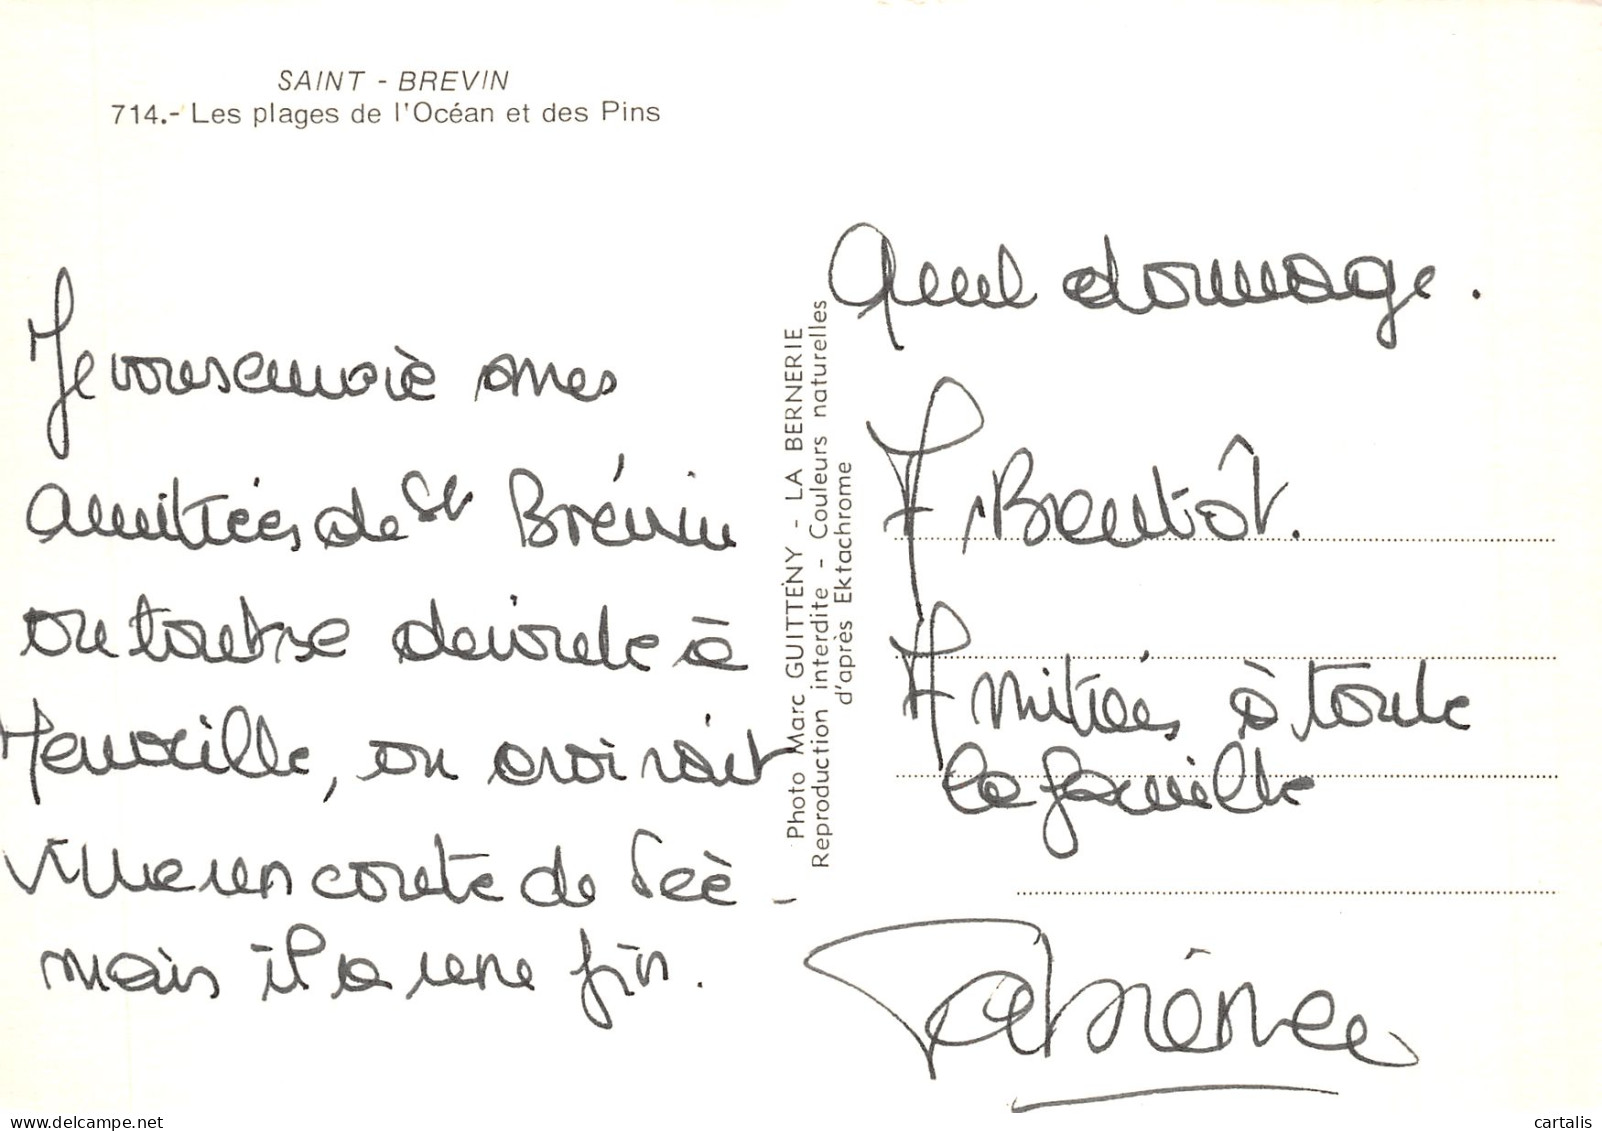 SAINT - BREVIN
714.- Les plages de l'Océan et des Pins
Je vous envoie mes
amitiés de St Brévin
ou tout se déroule à
Merveille, on croirait
vivre un conte de Fée -
mais il a une fin.
Photo Marc GUITTENY - LA BERNERIE
Reproduction interdite - Couleurs naturelles
d'après Ektachrome
Quel dommage.
A Bientôt.
Amitiés à toute
la famille
Fabienne
delcampe.net
cartalis